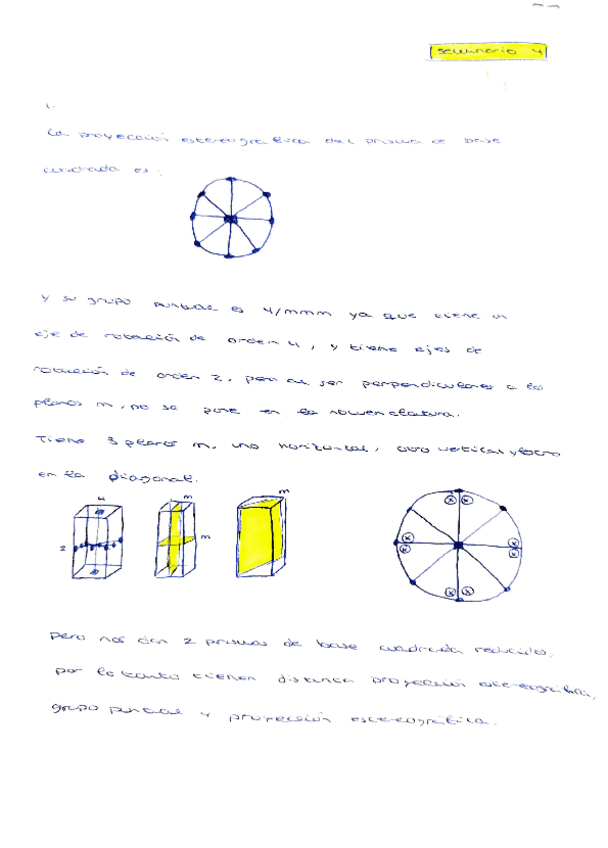 Seminario 4
1.
La proyección estereográfica del prisma de base
cuadrada es:
y su grupo puntual es 4/mmm ya que tiene un
eje de rotación de orden 4, y tiene ejes de
rotación de orden 2, pero al ser perpendiculares a los
planos m, no se pone en la nomenclatura.
Tiene 3 planos m, uno horizontal, otro vertical y otro
en la diagonal.
4
m
m
2
m
pero nos dan 2 prismas de base cuadrada
por lo tanto tienen distinta proyección estereográfica,
grupo puntual y proyección estereográfica.